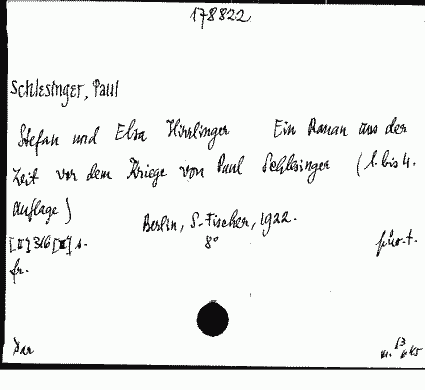 178822
Schlesinger, Paul
Stefan und Elsa Hirrlinger Ein Roman aus der
Zeit vor dem Kriege von Paul Schlesinger (1. bis 4.
Auflage)
Berlin, S. Fischer, 1922.
[II] 316 [II] s. 8°
fr.